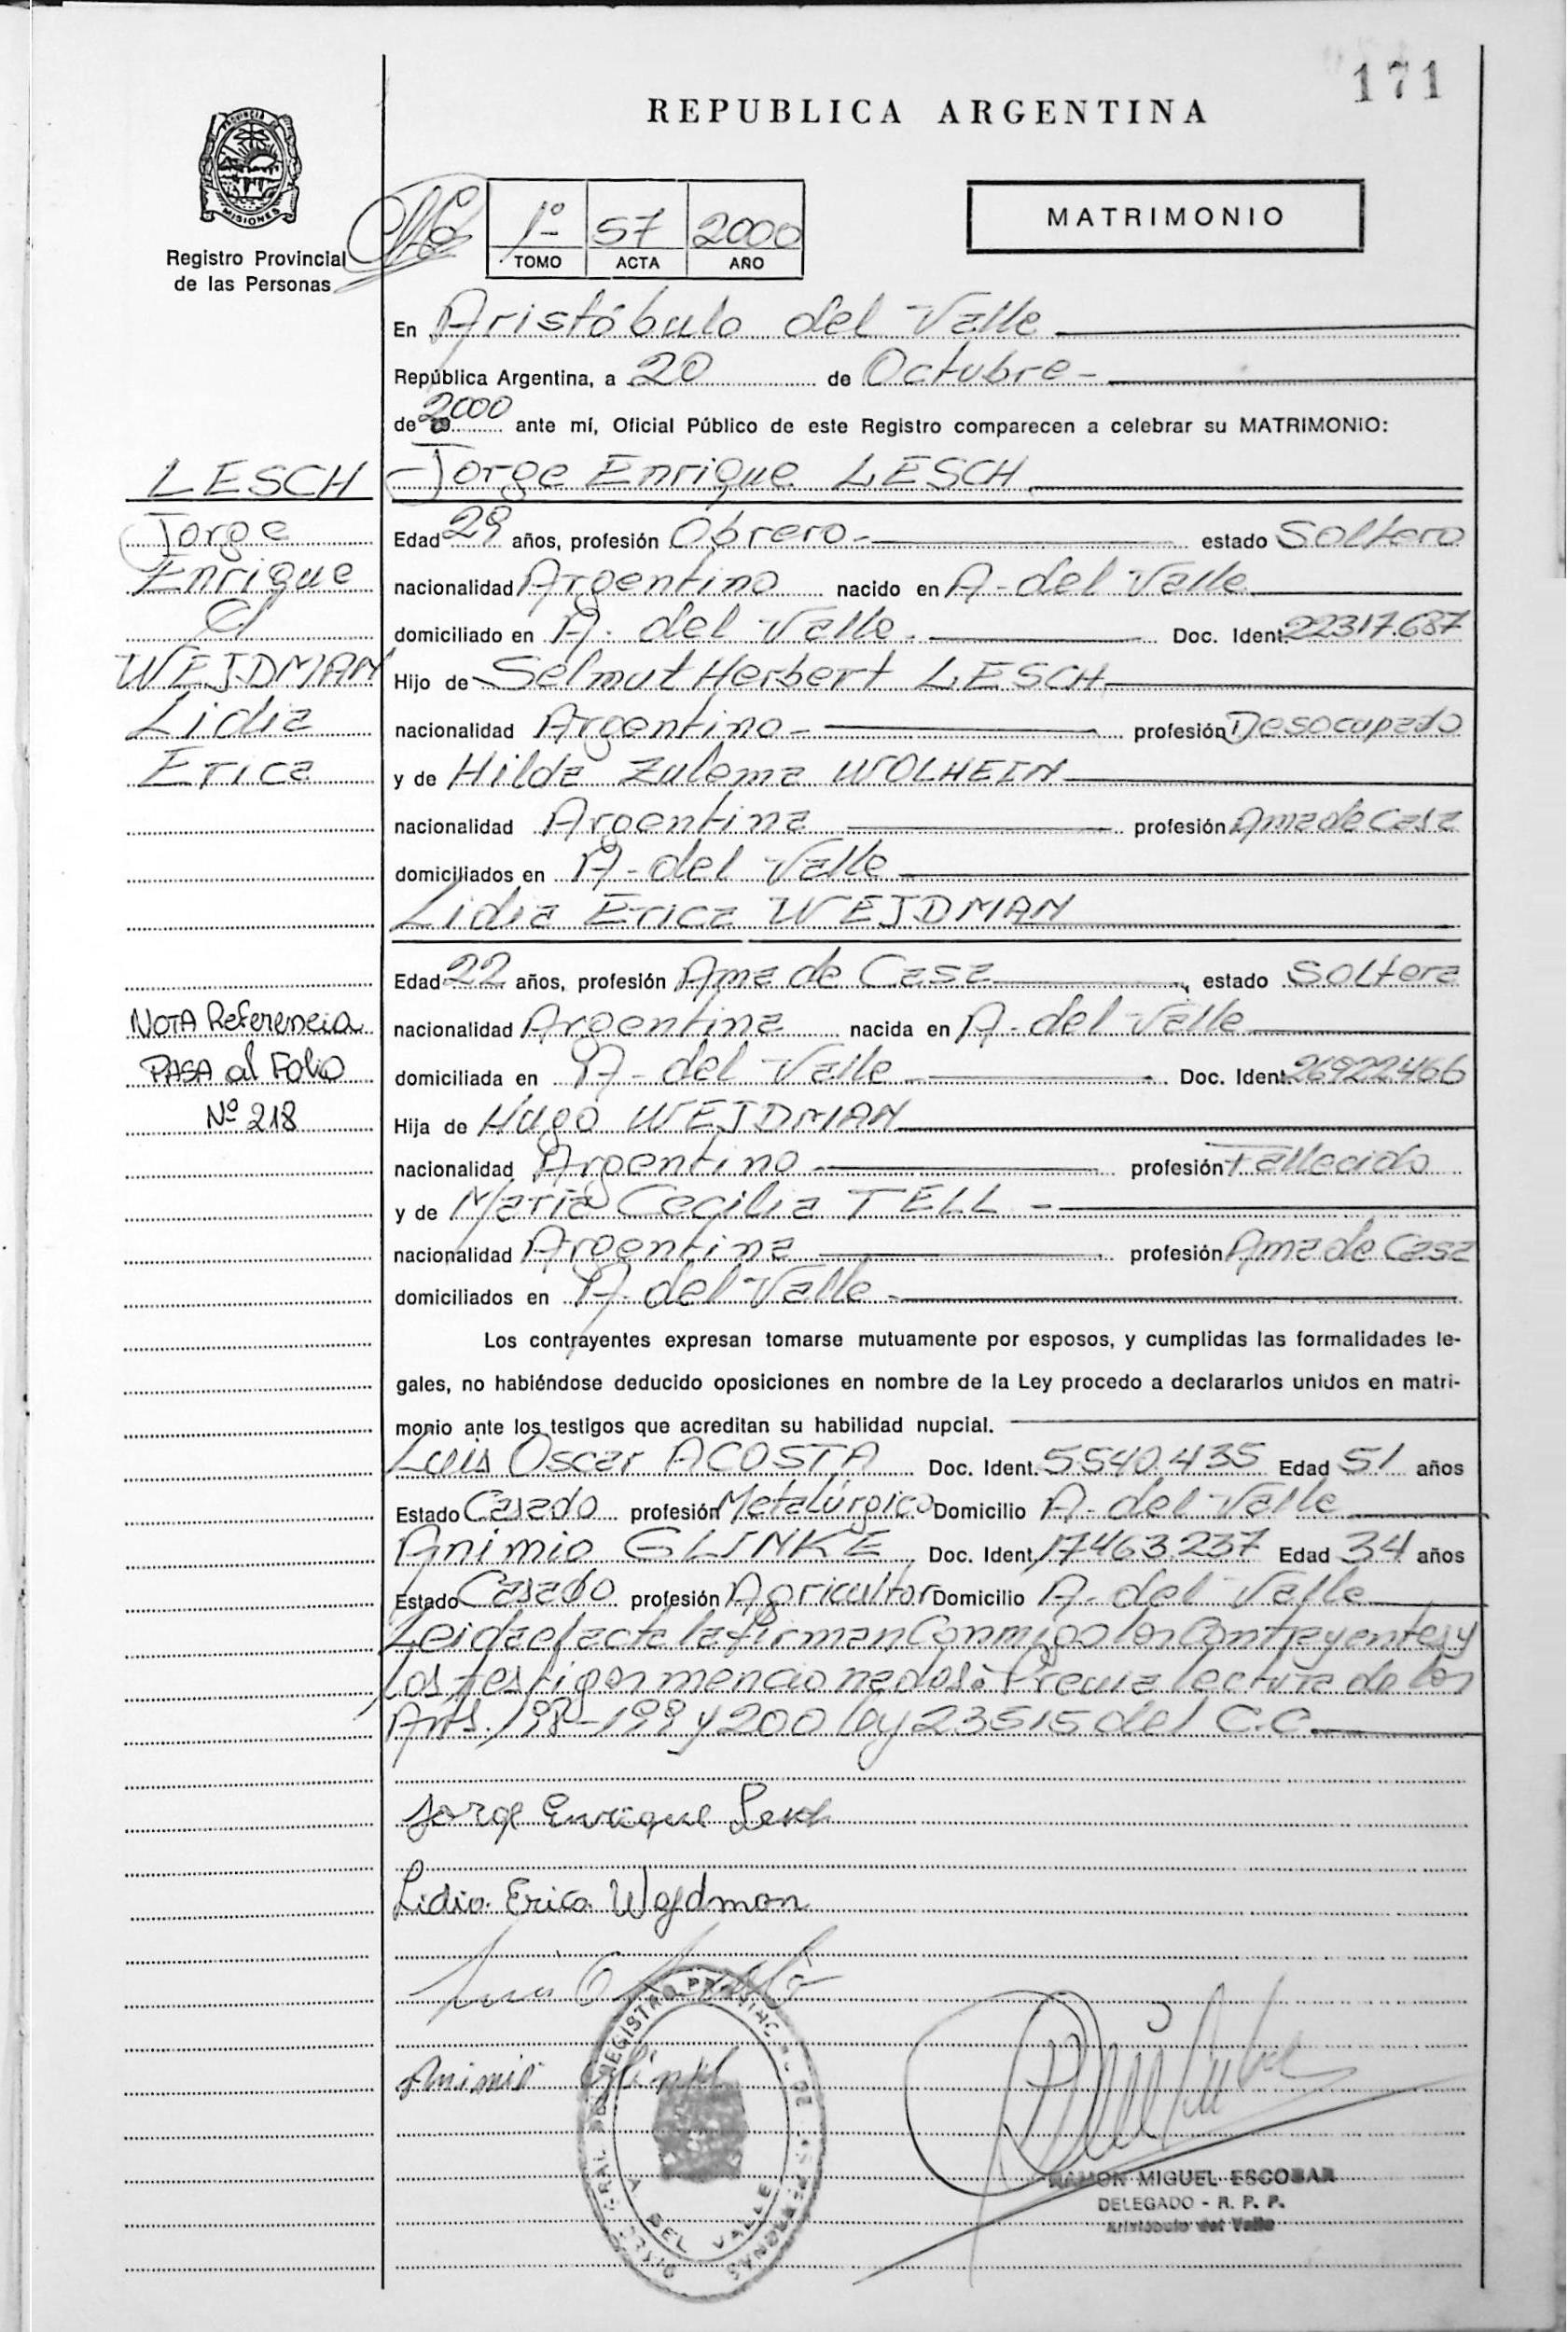 171
REPUBLICA ARGENTINA
PROVINCIA DE
MISIONES
Registro Provincial
de las Personas
1º 57 2000
TOMO ACTA AÑO
MATRIMONIO
En Aristóbulo del Valle
República Argentina, a 20 de Octubre
de 2000 ante mí, Oficial Público de este Registro comparecen a celebrar su MATRIMONIO:
LESCH
Jorge
Enrique
C/
WEJDMAN
Lidia
Erica
Jorge Enrique LESCH
Edad 29 años, profesión Obrero estado Soltero
nacionalidad Argentino nacido en A. del Valle
domiciliado en A. del Valle Doc. Ident. 22317.687
Hijo de Selmut Herbert LESCH
nacionalidad Argentino profesión Desocupado
y de Hilda Zulema WOLHEIN
nacionalidad Argentina profesión Ama de Casa
domiciliados en A. del Valle
Lidia Erica WEJDMAN
Edad 22 años, profesión Ama de Casa estado Soltera
NOTA Referencia
PASA al Folio
Nº 218
nacionalidad Argentina nacida en A. del Valle
domiciliada en A. del Valle Doc. Ident. 26922466
Hija de Hugo WEJDMAN
nacionalidad Argentino profesión Fallecido
y de María Cecilia TELL
nacionalidad Argentina profesión Ama de Casa
domiciliados en A. del Valle
Los contrayentes expresan tomarse mutuamente por esposos, y cumplidas las formalidades le-
gales, no habiéndose deducido oposiciones en nombre de la Ley procedo a declararlos unidos en matri-
monio ante los testigos que acreditan su habilidad nupcial.
Luis Oscar ACOSTA Doc. Ident. 5540.435 Edad 51 años
Estado Casado profesión Metalúrgico Domicilio A. del Valle
Animio GLINKE Doc. Ident. 17463.237 Edad 34 años
Estado Casado profesión Agricultor Domicilio A. del Valle
Leida el acta la firman Conmigo los Contrayentes y
los testigos mencionados. Previa lectura de los
Arts. 198-199 y 200 ley 23515 del C.C.
Jorge Enrique Lesch
Lidia Erica Wejdman
Animio Glinke
A. DEL VALLE
RAMON MIGUEL ESCOBAR
DELEGADO - R. P. P.
Aristóbulo del Valle